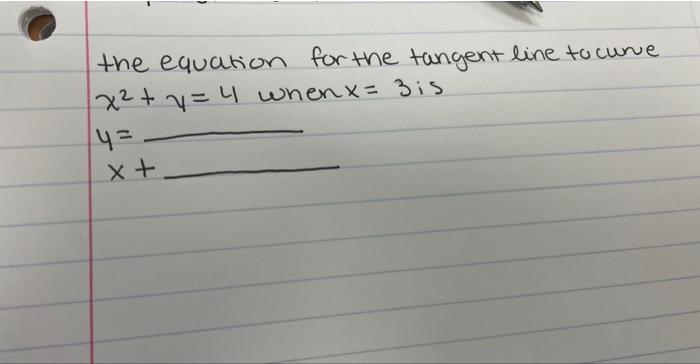 the equation for the tangent line to curve
x² + y = 4 when x = 3 is
y = ____________
x + ____________